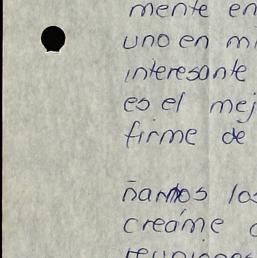 mente en
uno en mi
interesante
es el mej
firme de
ñamos los
creáme
reuniones